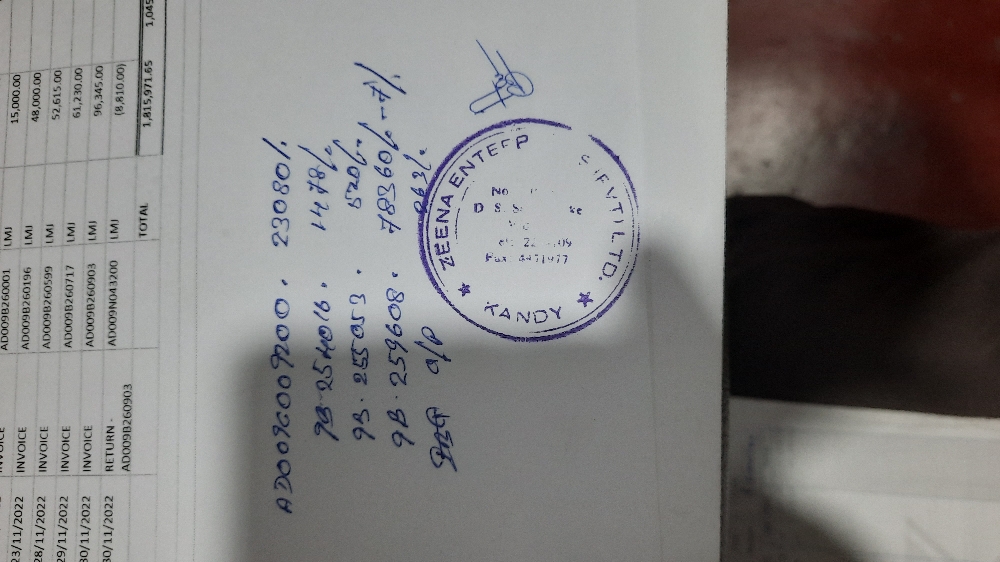 23/11/2022 INVOICE AD009B260001 LMI 15,000.00
28/11/2022 INVOICE AD009B260196 LMI 48,000.00
29/11/2022 INVOICE AD009B260599 LMI 52,615.00
30/11/2022 INVOICE AD009B260717 LMI 61,230.00
30/11/2022 INVOICE AD009B260903 LMI 96,345.00
RETURN - AD009N043200 LMI (8,810.00)
AD009B260903
TOTAL 1,815,971.65 1,045
AD009C009200. 23080/.
9B-254016. 1478/.
9B. 255053. 520/.
9B. 259608. 78360/. -7%
O/P 263/.
ZEENA ENTERP
LTD.
KANDY
No
Fax